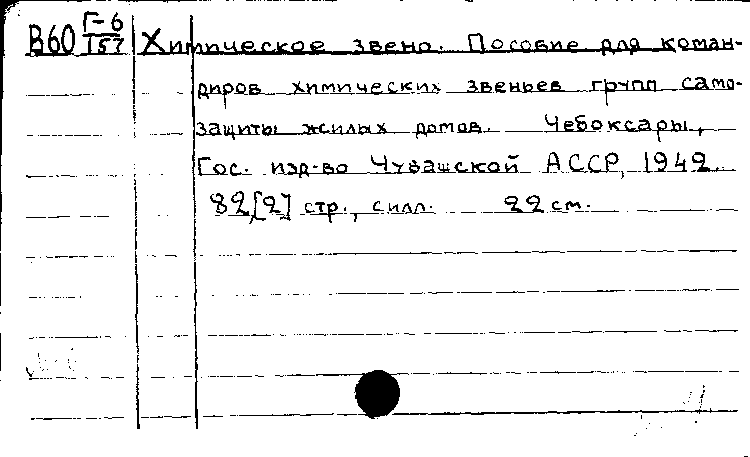 В60 Г-6/157 Химическое звено. Пособие для коман-
диров химических звеньев групп само-
защиты жилых домов. Чебоксары,
Гос. изд-во Чувашской АССР, 1942.
82,[2] стр., с илл. 22 см.